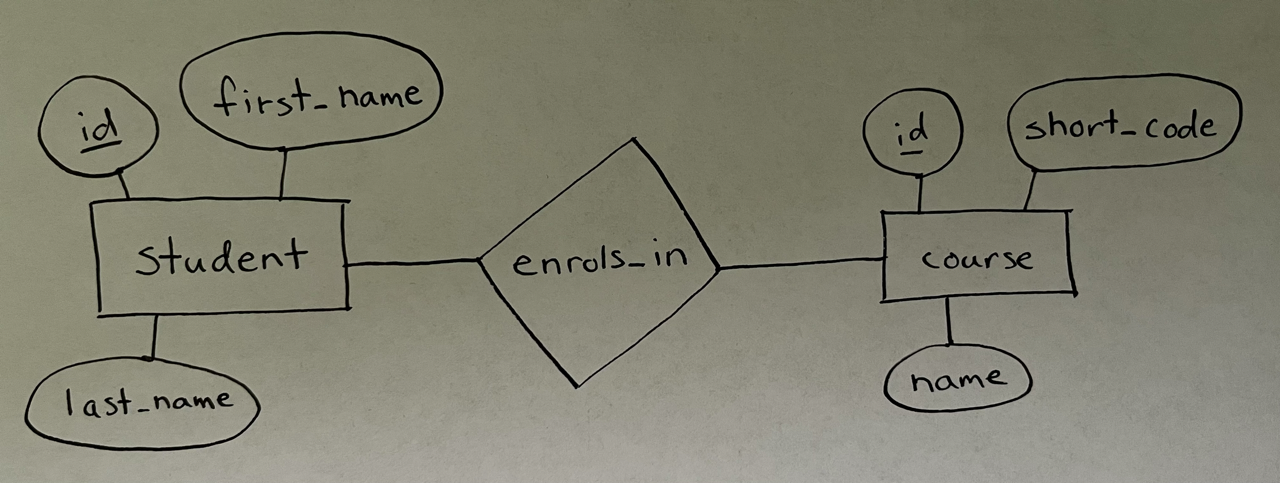 id
first_name
student
last_name
enrols_in
id
short_code
course
name